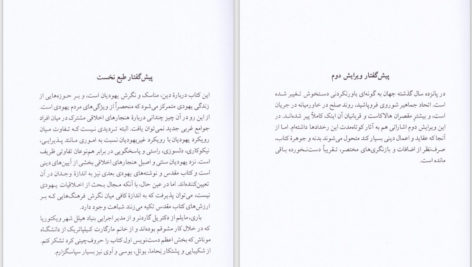 پیش‌گفتار ویرایش دوم
در پانزده سال گذشته جهان به گونه‌ای باورنکردنی دستخوش تغییر شده
است. اتحاد جماهیر شوروی فروپاشید، روند صلح در خاورمیانه در جریان
است، و بیشترِ مقصران هالاکاست و قربانیان آن اینک کاملاً پیر شده‌اند. در
این ویرایش دوم اشاراتی هم به آثار کوتاه‌مدت این رخدادها داشته‌ام. اما از
آنجا که عقاید و اعمال دینی بسیار کند متحول می‌شوند، بدنه و جوهرهٔ کتاب،
صرف‌نظر از اضافات و بازنگری‌های مختصر، تقریباً دست‌نخورده باقی
مانده است.
پیش‌گفتار طبع نخست
این کتاب دربارهٔ دین، مناسک و نگرش یهودیان است، و بر حوزه‌هایی از
زندگی یهودی متمرکز می‌شود که منحصراً از ویژگی‌های مردم یهودی است.
از این رو در آن چیز چندانی دربارهٔ هنجارهای اخلاقی مشترک در میان افراد
جوامع غربی جدید نمی‌توان یافت. البته تردیدی نیست که تفاوت میان
رویکرد یهودیان با رویکرد غیریهودیان نسبت به اموری مانند پذیرایی،
نیکوکاری، دلسوزی، راستی و پاسخگویی در برابر هم‌نوعان تفاوتی ظریف
است. نزد یهودیان سنتی و اصیل هنجارهای اخلاقی بخشی از آیین‌های دینی
است و کتاب مقدس و نوشته‌های یهودی بعدی نیز به اندازهٔ وجدان در آن
تعیین‌کننده‌اند. اما در عین حال، با آنکه مجال بحث از اخلاقیات یهودی
نیست، می‌توان پذیرفت که به اندازهٔ کافی میان نگرش فرهنگ‌هایی که بر
ارزش‌های کتاب مقدس تکیه می‌زنند شباهت وجود دارد.
باری، مایلم از دکتر پل گاردنر و از مدیر اجرایی بنیاد هیلل شهر ویکتوریا
که در خلال کار مشوقم بوده‌اند و از خانم مارگارت کیلپاتریک از دانشگاه
موناش که بخش اعظم دست‌نویس اول کتاب را حروف‌چینی کرد تشکر کنم.
از شکیبایی و پشتکار نحاما، یوئل، یوسی و آوی نیز بسیار سپاسگزارم.